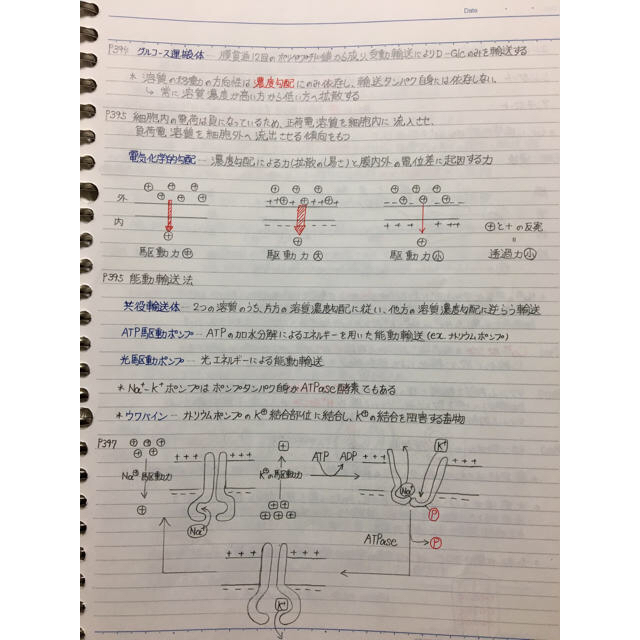 Date
P394 グルコース運搬体 ― 膜貫通12回のポリペプチド鎖から成り、受動輸送によりD-Glcのみを輸送する
* 溶質の移動の方向性は濃度勾配にのみ依存し、輸送タンパク自身には依存しない。
↳ 常に溶質濃度が高い方から低い方へ拡散する
P395 細胞内の電荷は負になっているため、正荷電溶質を細胞内に流入させ、
負荷電溶質を細胞外へ流出させる傾向をもつ
電気化学的勾配 ― 濃度勾配による力(拡散のし易さ)と膜内外の電位差に起因する力
外
内
駆動力㊥ 駆動力㊅ 駆動力㊙
⊕と+の反発
=
透過力小
P395 能動輸送法
共役輸送体 ― 2つの溶質のうち、片方の溶質濃度勾配に従い、他方の溶質濃度勾配に逆らう輸送
ATP駆動ポンプ ― ATPの加水分解によるエネルギーを用いた能動輸送(ex. ナトリウムポンプ)
光駆動ポンプ ― 光エネルギーによる能動輸送
* Na⁺-K⁺ポンプはポンプタンパク自身がATPase酵素でもある
* ウワバイン ― ナトリウムポンプのK⊕結合部位に結合し、K⊕の結合を阻害する毒物
P397
Na⊕駆動力
K⊕の駆動力
ATP ADP
K⁺
Na⁺
P
Na⁺
ATPase
P
K⁺